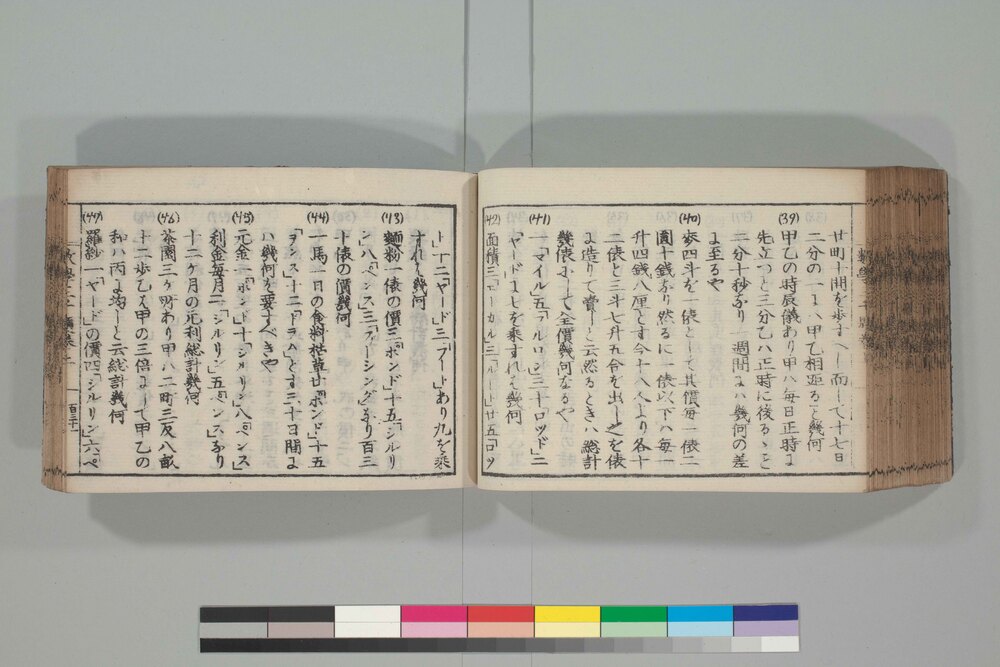 廿町十間を歩すへし而して十七日
二分の一にハ甲乙相距ること幾何
(39)
甲乙の時辰儀あり甲ハ毎日正時に
先立つこと三分乙ハ正時に後るゝこと
二分十秒なり一週間にハ幾何の差
に至るや
(40)
歩四斗を一俵として其價毎一俵二
圓十銭なり然るに一俵以下ハ毎一
升四銭八厘とす今十八人より各十
二俵と三斗七升五合を出し之を俵
に造りて賣りしと云然るときハ総計
幾俵にして全價幾何なるや
(41)
一「マイル」五「フルロング」三十「ロッド」二
「ヤード」に七を乘すれは幾何
(42)
面積三「エーカル」三「ルート」廿五「ロッ
ト」十二「ヤード」三「フート」あり九を乘
すれは幾何
(43)
麺粉一俵の價三「ポンド」十五「シルリ
ン」八「ペンス」三「ファーシング」なり百三
十俵の價幾何
(44)
一馬一日の食料枯草廿「ポンド」十五
「ヲンス」十二「ドラム」とす三十日間に
ハ幾何を要すべきや
(45)
元金一「ポンド」十「シルリン」八「ペンス」
利金毎月二「シルリン」五「ペンス」なり
十二ヶ月の元利総計幾何
(46)
茶園三ヶ所あり甲ハ二町三反八畝
十二歩乙ハ甲の三倍にして甲乙の
和ハ丙に均しと云総計幾何
(47)
羅紗一「ヤード」の價四「シルリン」六「ペ
百三十一